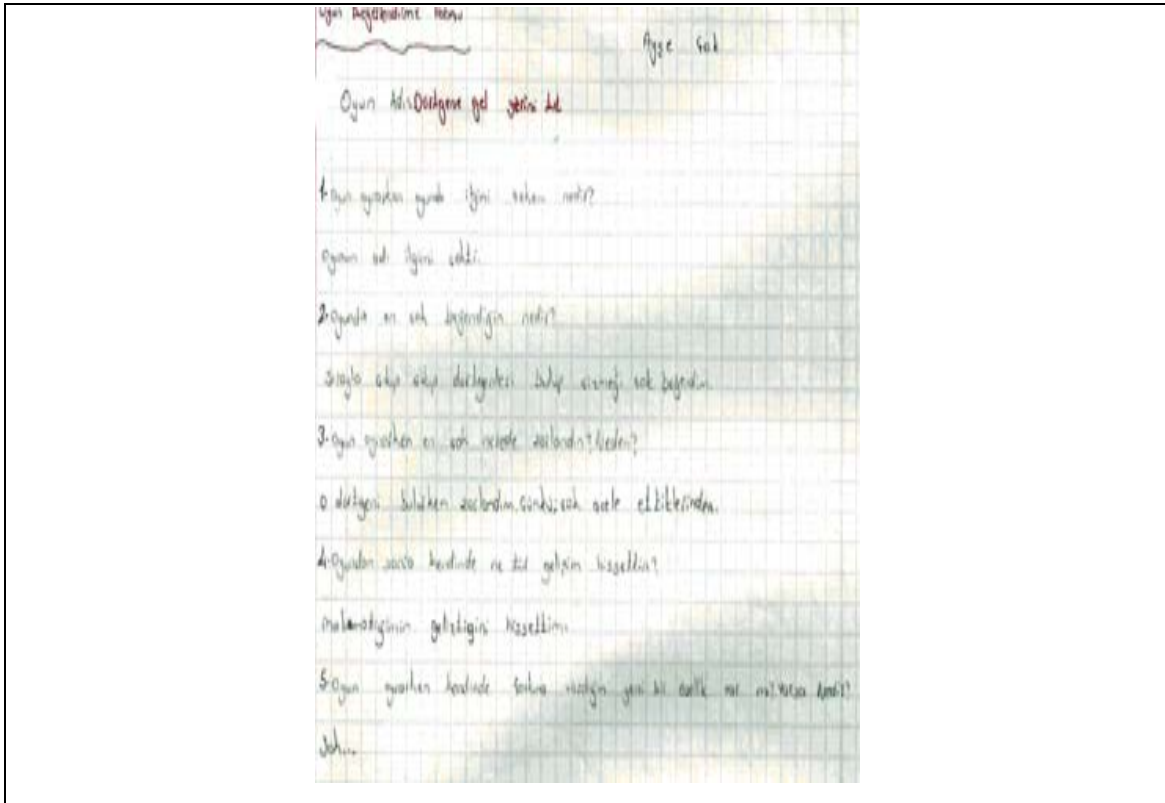 Oyun Değerlendirme Formu
Ayşe
Oyun Adı: Dörtgene gel yerini bul
1-Oyun oynarken oyunda ilgini çeken nedir?
Oyunun adı ilgimi çekti.
2-Oyunda en çok beğendiğin nedir?
Sırayla çıkıp dörtgenleri bulup çizmeği çok beğendim.
3-Oyun oynarken en çok nelerde zorlandın? Neden?
O dörtgeni bulurken zorlandım. Çünkü; çok acele ettiklerinden.
4-Oyundan sonra kendinde ne tür gelişim hissettin?
matematiğimin geliştiğini hissettim.
5-Oyun oynarken kendinde farkına vardığın yeni bir özellik var mı? Varsa nedir?